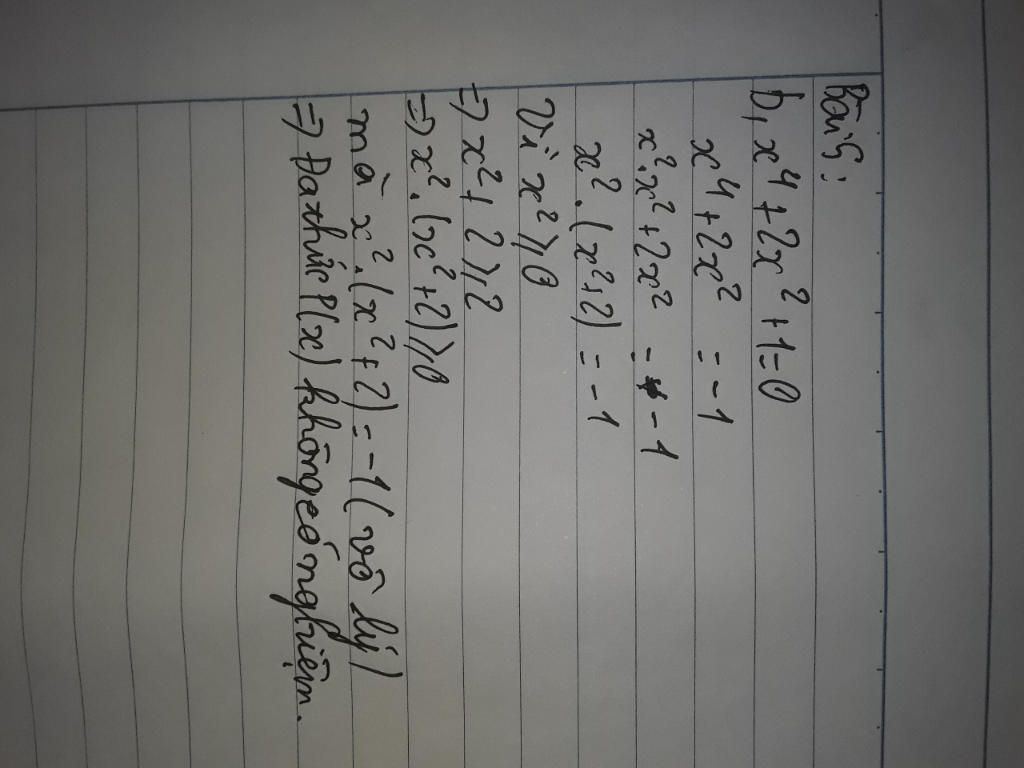 Bài 5:
b, x⁴ + 2x² + 1 = 0
x⁴ + 2x² = -1
x².x² + 2x² = -1
x².(x²+2) = -1
Vì x² ⩾ 0
=> x² + 2 ⩾ 2
=> x².(x²+2) ⩾ 0
mà x².(x²+2) = -1 (vô lý)
=> Đa thức P(x) không có nghiệm.